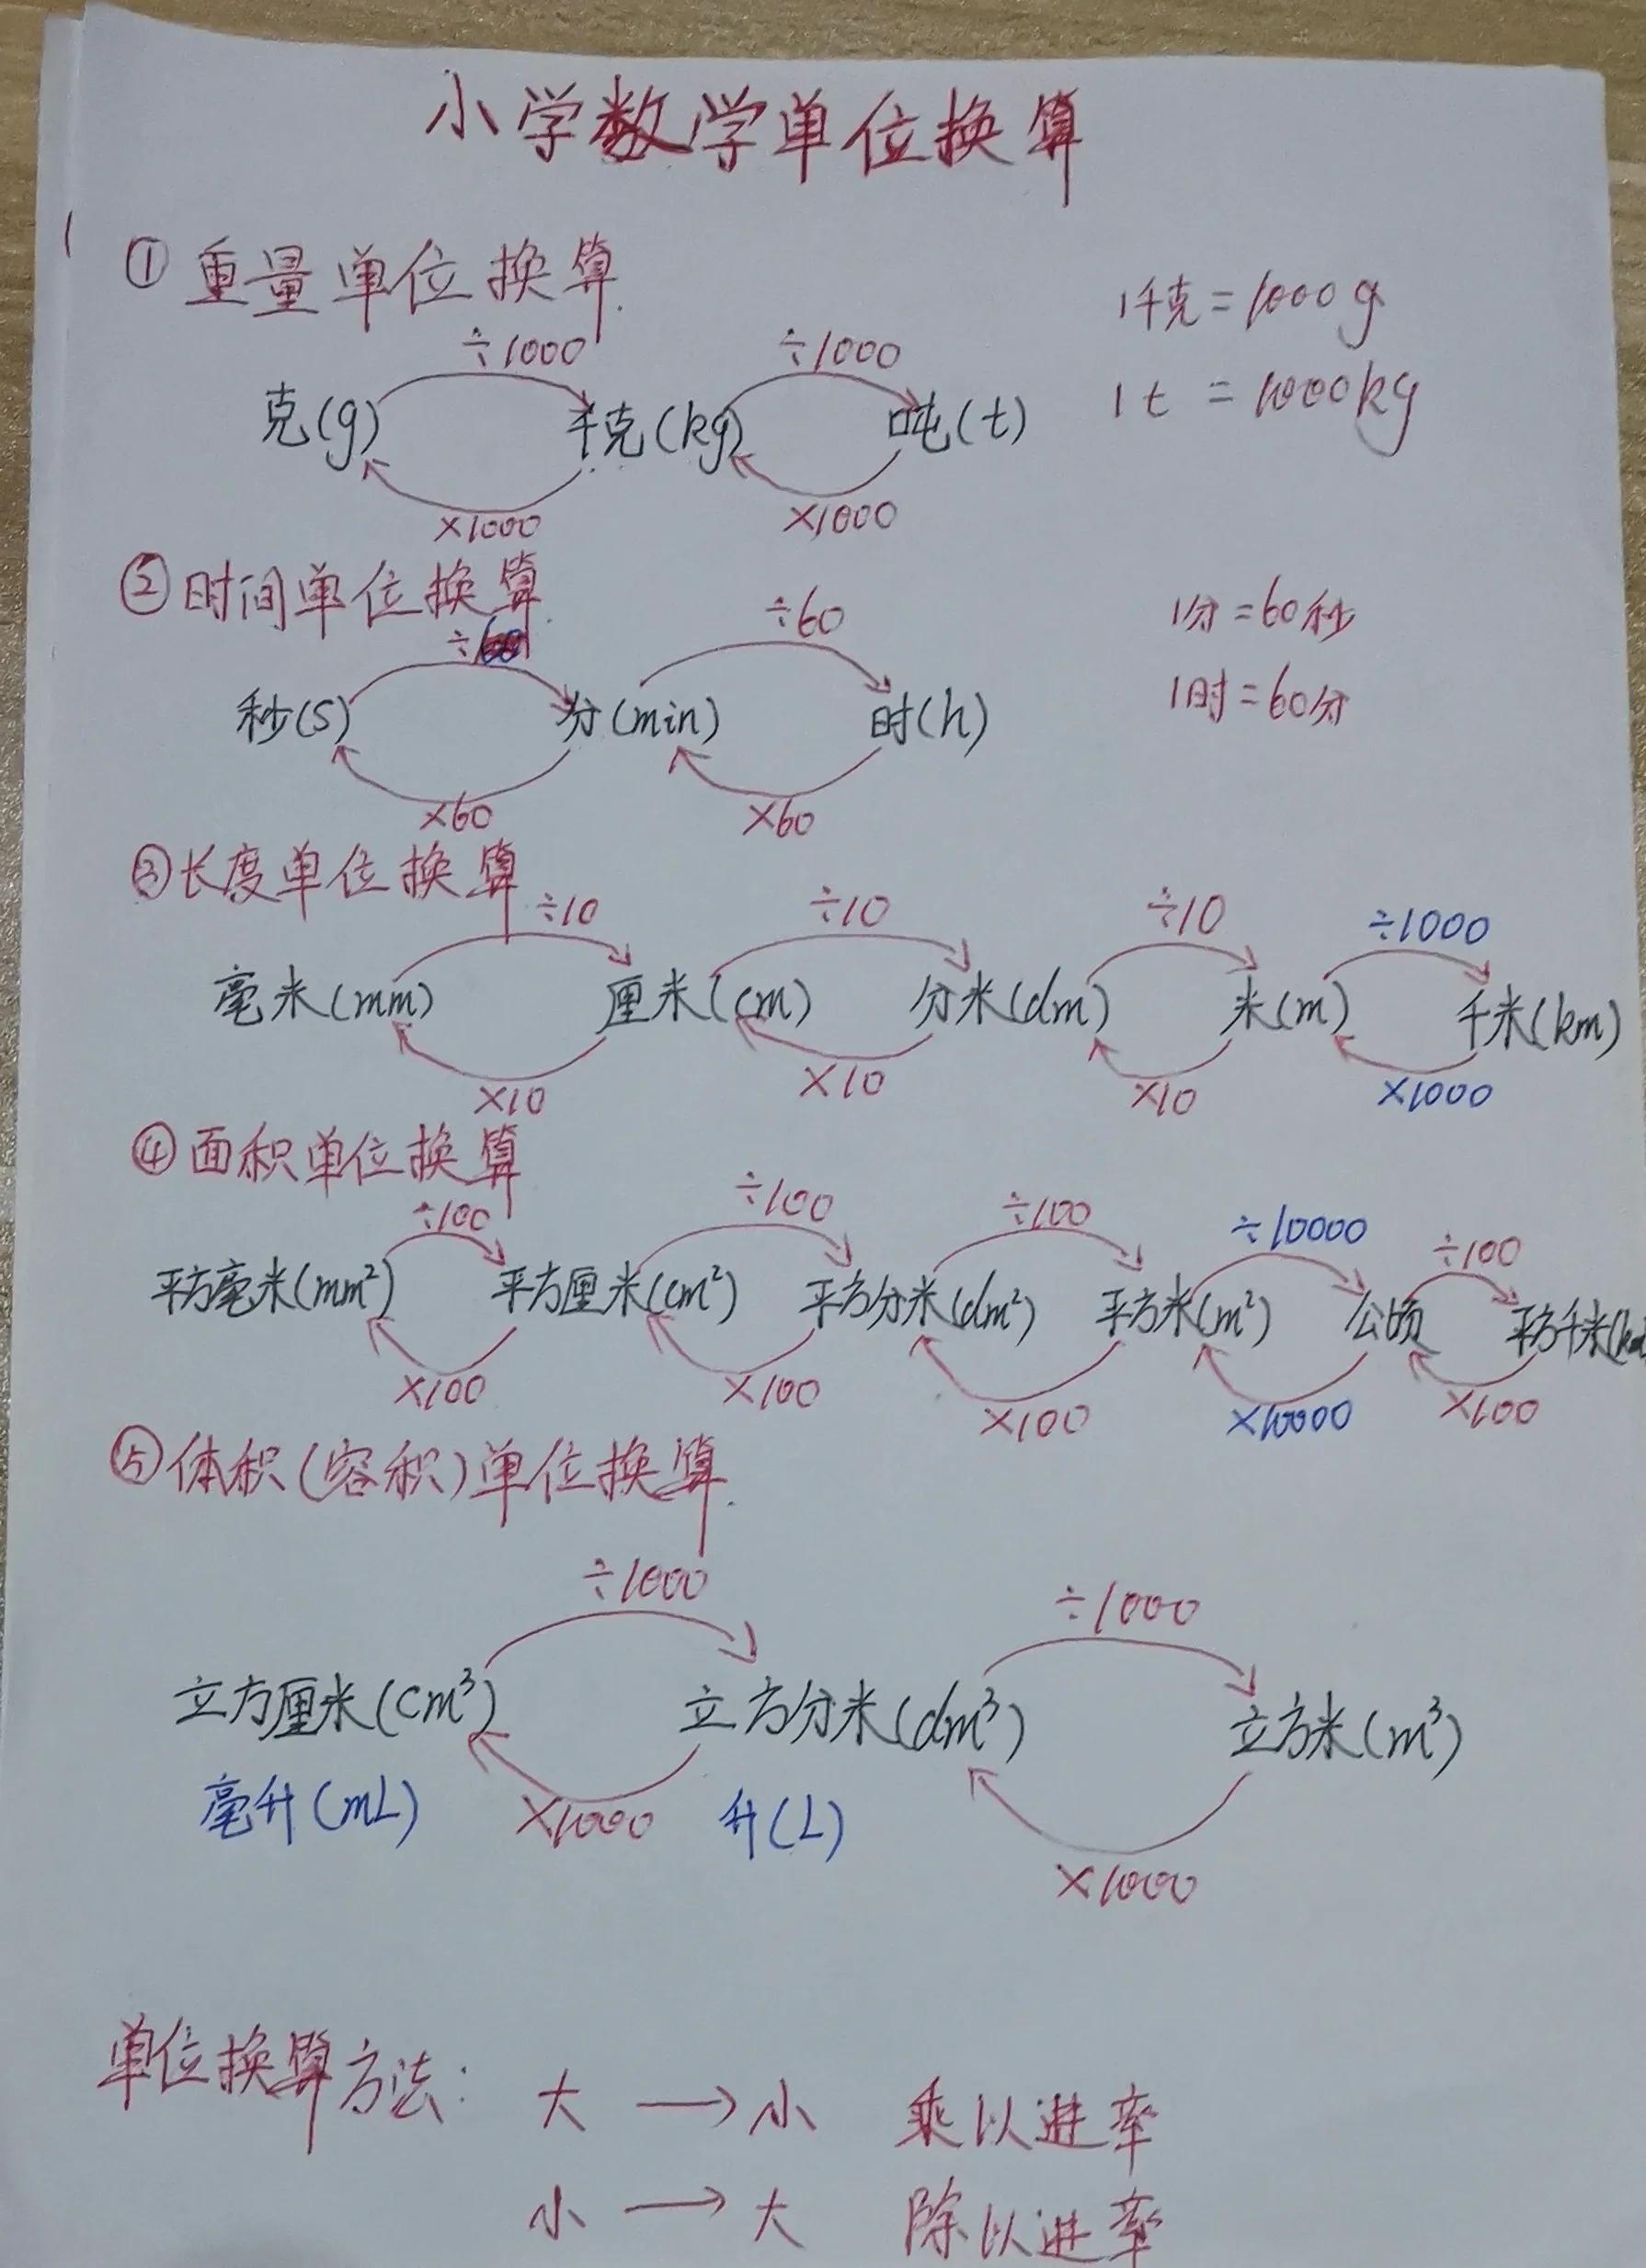 小学数学单位换算
①重量单位换算
1千克=1000g
÷1000 ÷1000
1t=1000kg
克(g) 千克(kg) 吨(t)
×1000 ×1000
②时间单位换算
÷60 ÷60
1分=60秒
秒(s) 分(min) 时(h)
1时=60分
×60 ×60
③长度单位换算
÷10 ÷10 ÷10 ÷1000
毫米(mm) 厘米(cm) 分米(dm) 米(m) 千米(km)
×10 ×10 ×10 ×1000
④面积单位换算
÷100 ÷100 ÷100 ÷10000 ÷100
平方毫米(mm²) 平方厘米(cm²) 平方分米(dm²) 平方米(m²) 公顷 平方千米(km
×100 ×100 ×100 ×10000 ×100
⑤体积(容积)单位换算
÷1000 ÷1000
立方厘米(cm³) 立方分米(dm³) 立方米(m³)
毫升(mL) ×1000 升(L)
×1000
单位换算方法: 大→小 乘以进率
小→大 除以进率